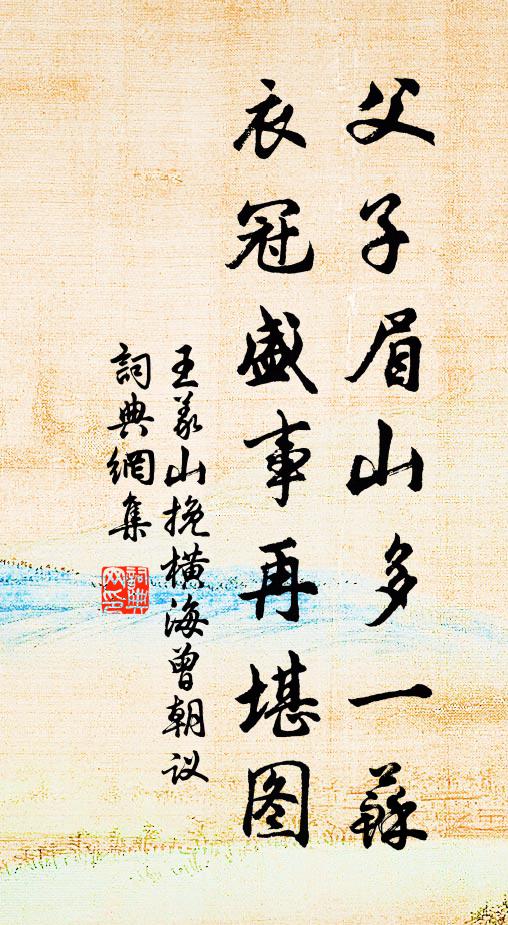 父子眉山多一蘇
衣冠盛事再堪图
王义山挽横海曾朝议
詞典網集
詞典